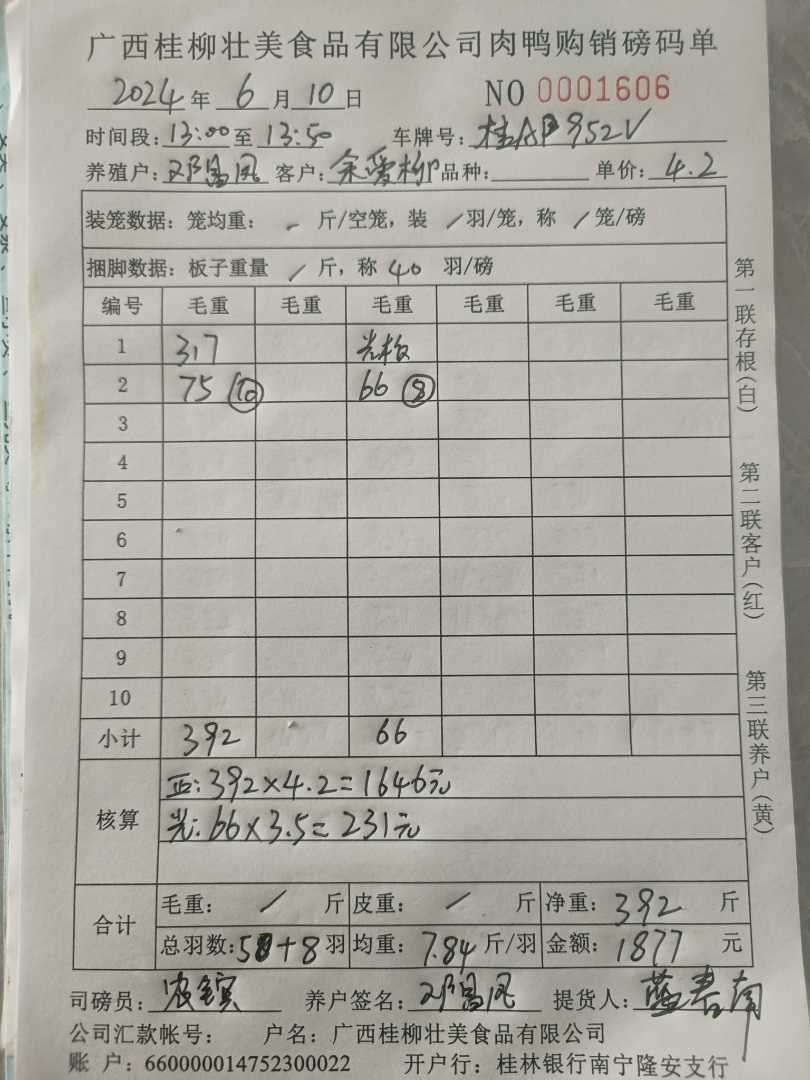 广西桂柳壮美食品有限公司肉鸭购销磅码单
2024年 6月10日 NO 0001606
时间段:13:00至 13:50 车牌号:桂AP952V
养殖户:邓昌凤 客户:余爱柳 品种: 单价:4.2
装笼数据: 笼均重: - 斤/空笼, 装 /羽/笼, 称 /笼/磅
捆脚数据: 板子重量 / 斤, 称 40 羽/磅
编号 毛重 毛重 毛重 毛重 毛重 毛重
1 317 光板
2 75 (10) 66 (8)
3
4
5
6
7
8
9
10
小计 392 66
核算
正: 392×4.2=1646元
光: 66×3.5=231元
合计
毛重: / 斤 皮重: / 斤 净重: 392 斤
总羽数:50+8羽 均重: 7.84斤/羽 金额: 1877 元
司磅员: 养户签名: 邓昌凤 提货人: 蓝春南
公司汇款帐号: 户名: 广西桂柳壮美食品有限公司
账 户: 660000014752300022 开户行: 桂林银行南宁隆安支行
第一联存根(白)
第二联客户(红)
第三联养户(黄)